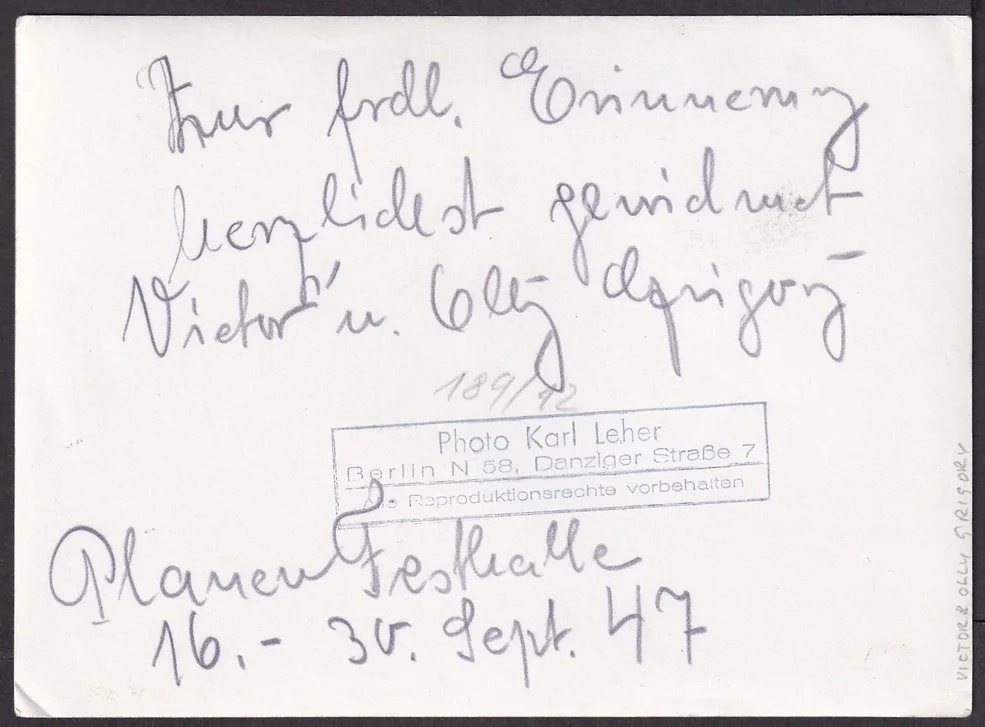 Zur frdl. Erinnerung
herzlichst gewidmet
Victor u. Olly Grigory
189/42
Photo Karl Leher
Berlin N 58, Danziger Straße 7
Alle Reproduktionsrechte vorbehalten
Plauen Festhalle
16.- 30. Sept. 47
VICTOR & OLLY GRIGORY